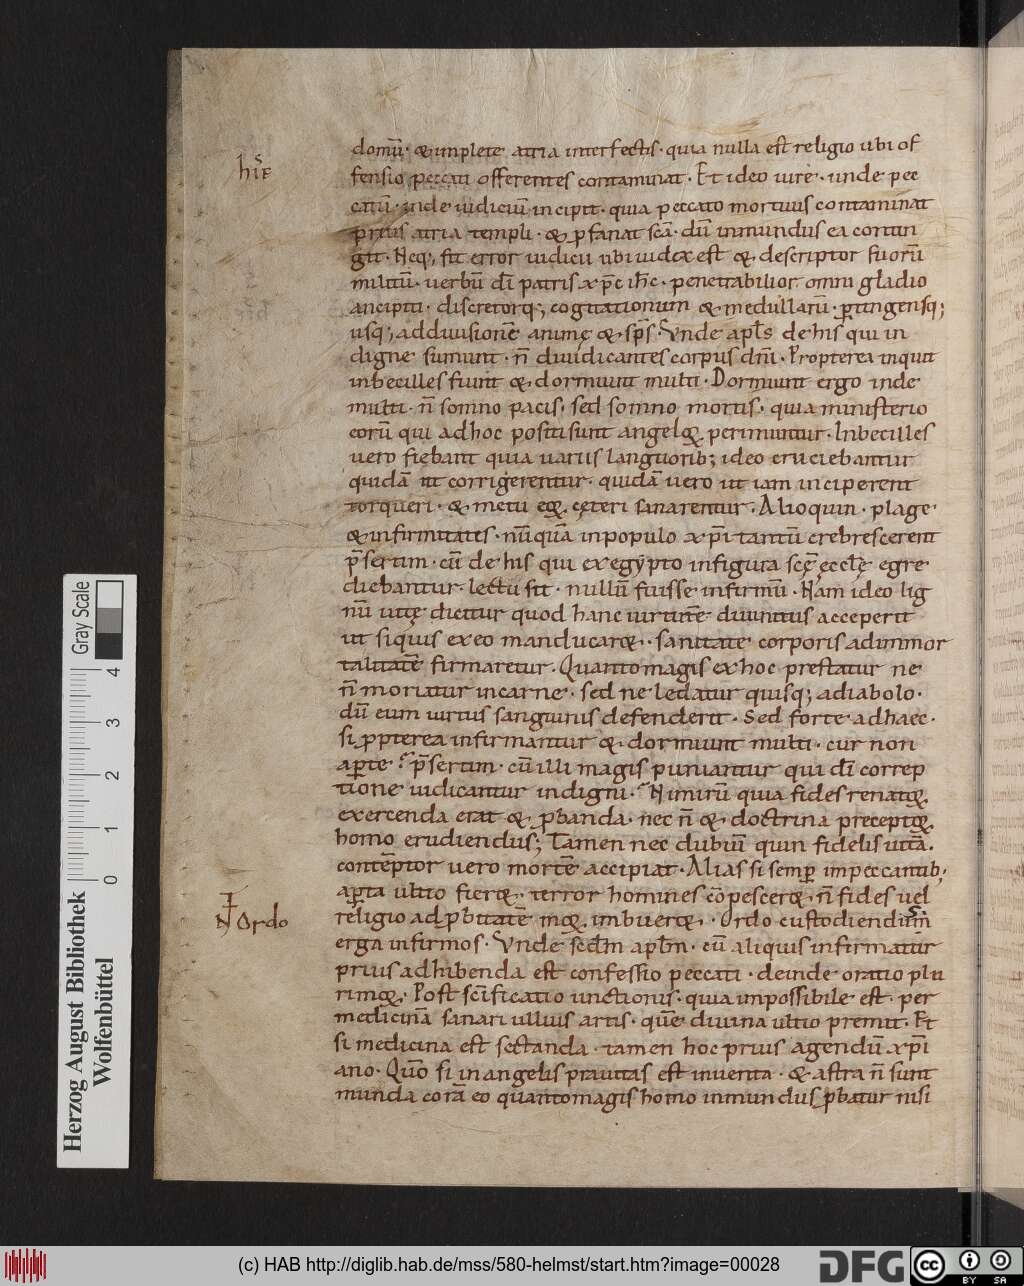 domū· & implete atria interfectis· quia nulla est religio ubi of
hiēr
fensio peccati offerentes contaminat· Et ideo iure· unde pec
catū· inde iudiciū incipit· quia peccato mortuus contaminat
prius atria templi· & pfanat scā· dū inmundus ea contin
git· Neq; fit error iudicii ubi iudex est & descriptor suorū
militū· uerbū dī patris xp̄c ih̄c· penetrabilior omni gladio
ancipiti· discretorq; cogitationum & medullarū· ptingensq;
usq; addiuisionē animę & sp̄s· Vnde apl̄s de his qui in
digne sumunt· n̄ diiudicantes corpus dn̄i· Propterea inquit
inbecilles fiunt & dormiunt multi· Dormiunt ergo inde
multi· n̄ somno pacis· sed somno mortis· quia ministerio
eorū qui adhoc positi sunt angeloꝝ perimuntur· Inbecilles
uero fiebant quia uariis languorib; ideo cruciebantur
quidā ut corrigerentur· quidā uero ut iam inciperent
torqueri· & metu eoꝝ cęteri sanarentur· Alioquin· plage
& infirmitates· nūquā inpopulo xp̄i tantū crebrescerent
p̄sertim· cū de his qui exegypto infigura scę ecclę egre
diebantur· lectū sit· nullū fuisse infirmū· Nam ideo lig
nū uitę dicitur quod hanc uirtutē diuinitus acceperit
ut siquis exeo manducaret· sanitate corporis adinmor
talitatē firmaretur· Quanto magis ex hoc prestatur ne
n̄ moriatur incarne· sed ne ledatur quisq; adiabolo·
dū eum uirtus sanguinis defenderit· Sed forte adhaec·
si ppterea infirmantur & dormiunt multi· cur non
aperte? p̄sertim· cū illi magis puniantur qui dī correp
tione iudicantur indigni· Nimirū quia fides renatoꝝ
exercenda erat & pbanda· nec n̄ & doctrina preceptoꝝ
homo erudiendus; Tamen nec dubiū quin fidelis uitā·
contēptor uero mortē accipiat· Alias si semp impeccantib;
apta ultio fieret· terror homines cōpesceret· n̄ fides uel
Ordo
religio ad pbitatē moꝝ imbueret· Ordo custodiendus
erga infirmos· Vnde scdm apl̄m· cū aliquis infirmatur
prius adhibenda est confessio peccati· deinde oratio plu
rimoꝝ· Post scīficatio unctionis· quia impossibile est· per
medicinā sanari ullius artis· quē diuina ultio premit· Et
si medicina est sectanda· tamen hoc prius agendū xp̄i
ano· Quō si in angelis prauitas est inuenta· & astra n̄ sunt
munda corā eo quanto magis homo inmundus pbatur nisi
Gray Scale
0 1 2 3 4
Herzog August Bibliothek
Wolfenbüttel
(c) HAB http://diglib.hab.de/mss/580-helmst/start.htm?image=00028
DFG
cc
BY SA